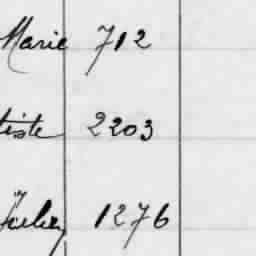 Marie 712
tiste 2203
Jules 1276